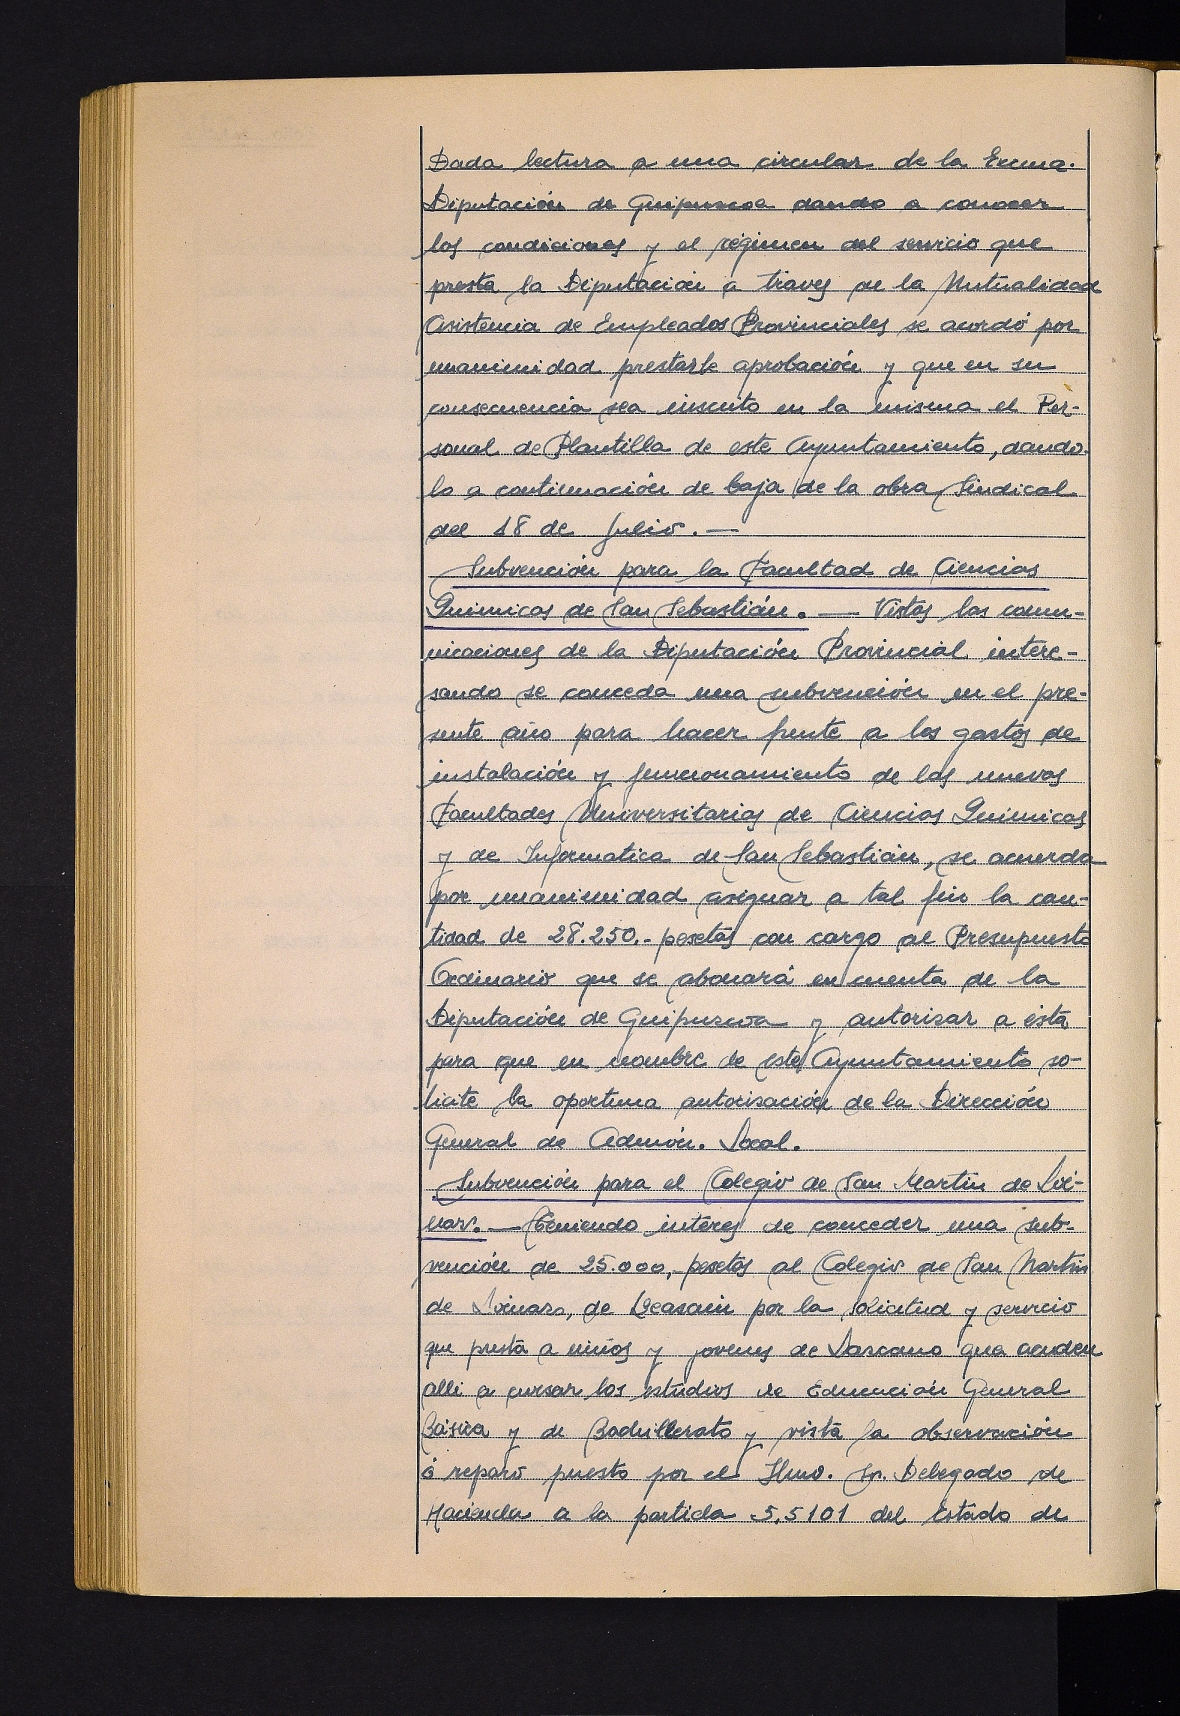 Dada lectura a una circular de la Excma.
Diputación de Guipuscoa dando a conocer
las condiciones y el régimen del servicio que
presta la Diputación a traves de la Mutualidad
Asistencia de Empleados Provinciales se acordó por
unanimidad prestarle aprobación y que en su
consecuencia sea inscrito en la misma el Per-
sonal de Plantilla de este Ayuntamiento, dando-
lo a continuación de baja de la obra Sindical
del 18 de Julio. —
Subvención para la Facultad de Ciencias
Quimicas de San Sebastián. — Vistas las comu-
nicaciones de la Diputación Provincial intere-
sando se conceda una subvención en el pre-
sente año para hacer frente a los gastos de
instalación y funcionamiento de las nuevas
Facultades Universitarias de Ciencias Quimicas
y de Informatica de San Sebastián, se acuerda
por unanimidad asignar a tal fin la can-
tidad de 28.250.- pesetas con cargo al Presupuesto
Ordinario que se abonará en cuenta de la
Diputación de Guipuscoa y autorisar a ésta
para que en nombre de este Ayuntamiento so-
licite la oportuna autorisación de la Dirección
General de Admón. Local.
Subvención para el Colegio de San Martin de Loi-
nars. — Teniendo interes de conceder una sub-
vención de 25.000,- pesetas al Colegio de San Martin
de Loinars, de Beasain por la solicitud y servicio
que presta a niños y jovenes de Lascano que acuden
alli a cursar los estudios de Educación General
Básica y de Bachillerato y vista la observación
ó reparo puesto por el Ilmo. Sr. Delegado de
Hacienda a la partida 5,5101 del Estado de